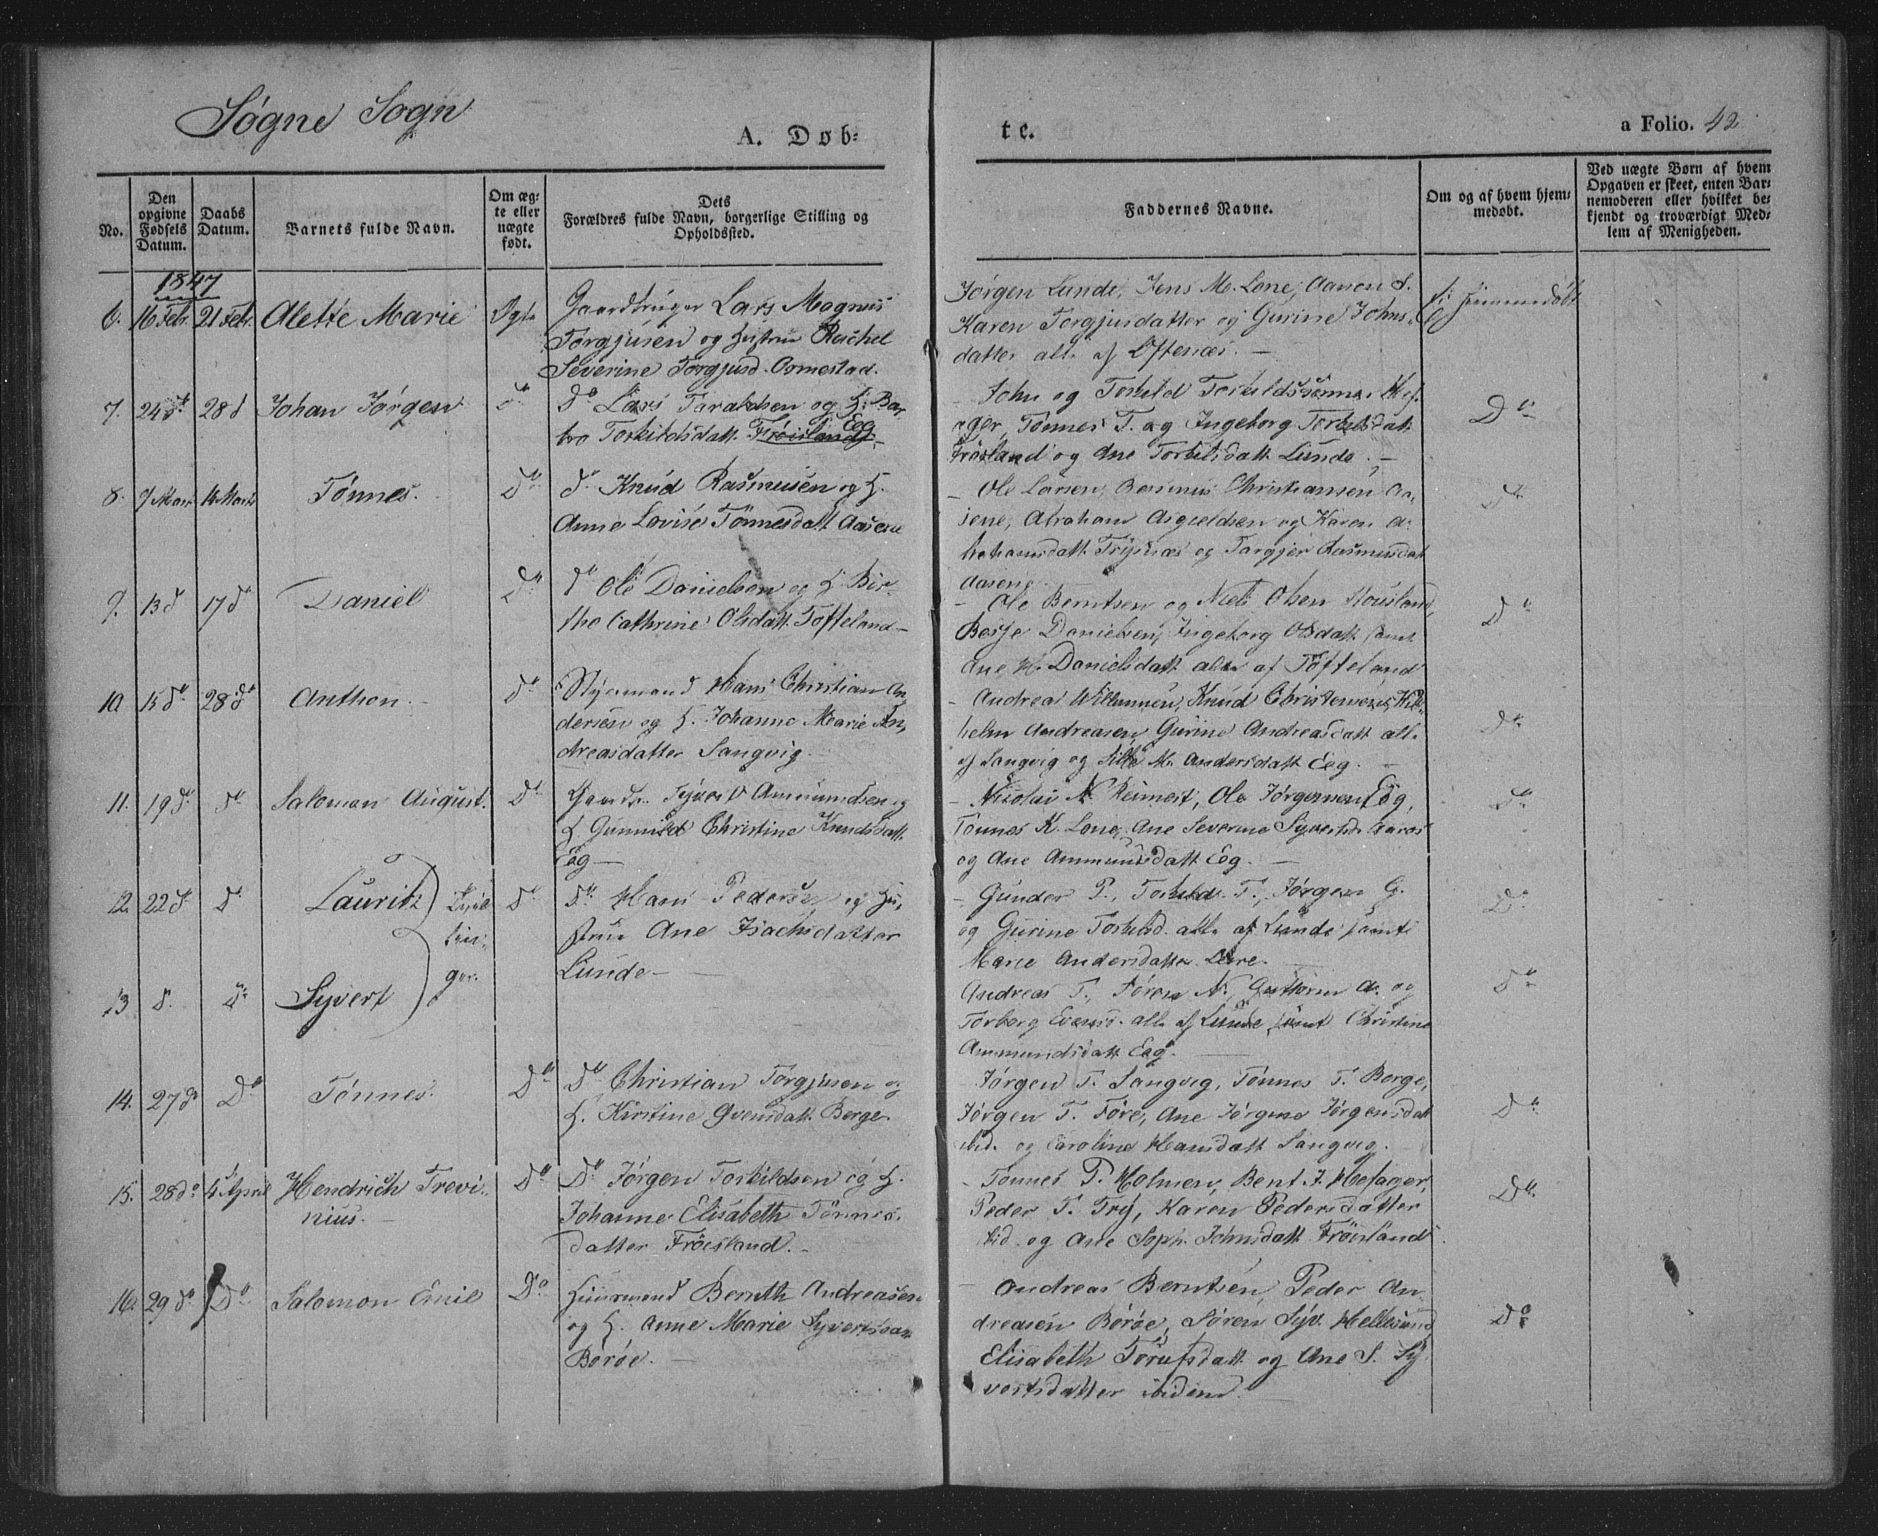 Søgne Sogn
A. Døb-
te.
a Folio. 42
No.
Den opgivne Fødsels Datum.
Daabs Datum.
Barnets fulde Navn.
Om ægte eller uægte født.
Dets Forældres fulde Navn, borgerlige Stilling og Opholdssted.
Faddernes Navne.
Om og af hvem hjemmedøbt.
Ved uægte Børn af hvem Opgaven er skeet, enten Barnemoderen eller hvilket bekjendt og troværdigt Medlem af Menigheden.
1847
6. 16 Febr. 21 Febr. Alette Marie Ægte
Gaardbruger Lars Magnus
Torgjusen og Hustrue Rachel
Severine Torgjusd. Osmestad.
Jørgen Lunde, Jens M. Lone, Aanon S.
Karen Torgjusdatter og Gurine Johns-
datter alle af Oftenæs.
Ei hjemmedøbt
7. 24 do 28 d Johan Jørgen do
do Lars Taraldsen og H. Bar-
bro Torkildsdatt. Frøisland Eeg
John og Torkild Torkildssønner
Tønnes T. og Ingeborg Torkelsdatt.
Frøisland og Ane Torkelsdatt. Lunde.
Do
8. 7 Marts 14 Marts Tønnes. Do
do Knud Rasmusen og H.
Anne Lovise Tønnesdatt. Aasene
Ole Larsen, Rasmus Christiansen Aa-
sene, Abraham Asgieldsen og Karen A-
brahamsdatt. Trysnæs og Torgjer Rasmusdatt.
Aasene
Do
9. 13 d 17 d Daniel Do
do Ole Danielsen og H. Bir-
the Cathrine Olsdatt. Tofteland
Ole Berntsen og Niels Olsen Housland,
Berje Danielsen, Ingeborg Olsdatt. samt
Ane M. Danielsdatt. alle af Tofteland
Do
10 15 do 28 do Anthon. Do
Styrmand Hans Christian An-
dersen og H. Johanne Marie An-
dreasdatter Langvig
Andrea Willumsen, Knud Christensen, Wil-
helm Andreasen, Gurine Andreasdatt. alle
af Langvig og Silla M. Andersdatt. Eeg.
Do
11. 19 do do Salomon August. Do
Gaardbr. Syvert Ammundsen og
H. Gunnild Christine Knudsdatt.
Eeg
Nicolai N. Reimert, Ole Jørgensen Eeg,
Tønnes K. Lone, Ane Severine Syvertsd. Aaros
og Ane Ammundsdatt. Eeg.
Do
12. 22 d. Do Lauritz Do
Tvil-
lin-
ger.
Do Hans Pedersen og Hu-
strue Ane Isachsdatter
Lunde
Gunder P., Torkild T., Jørgen G.
og Gurine Torkelsd. alle af Lunde samt
Marie Andersdatter Leire.
Do
13 d. Do Syvert
Andreas T., Søren N., Guttorm A. og
Torborg Evensd. alle af Lunde samt Christine
Ammundsdatt. Eeg.
Do
14. 27 do Do Tønnes. Do
Do Christian Torgjusen og
H. Kirstine Gvensdatt. Berge.
Jørgen T. Langvig, Tønnes T. Berge,
Jørgen T. Føre, Ane Jørgine Jørgensdatt.
ibid. og Caroline Hansdatt. Langvig.
Do
15. 28 do 4 April Hendrich Trevi-
nius. Do
Do Jørgen Torkildsen og H.
Johanne Elisabeth Tønnes-
datter Frøisland.
Tønnes P. Holmen, Bent J. Høfager,
Peder T. Try, Karen Pedersdatter
ibid. og Ane Soph. Johnsdatt. Frøisland
Do
16. 29 do Do Salomon Emil Do
Huusmand Bernth Andreasen
og H. Anne Marie Syvertsdatt.
Børøe.
Andreas Berntsen, Peder An-
dreasen Børøe, Søren Syv. Hellesund
Elisabeth Torufsdatt. og Ane S. Sy-
vertsdatter ibidem.
Do